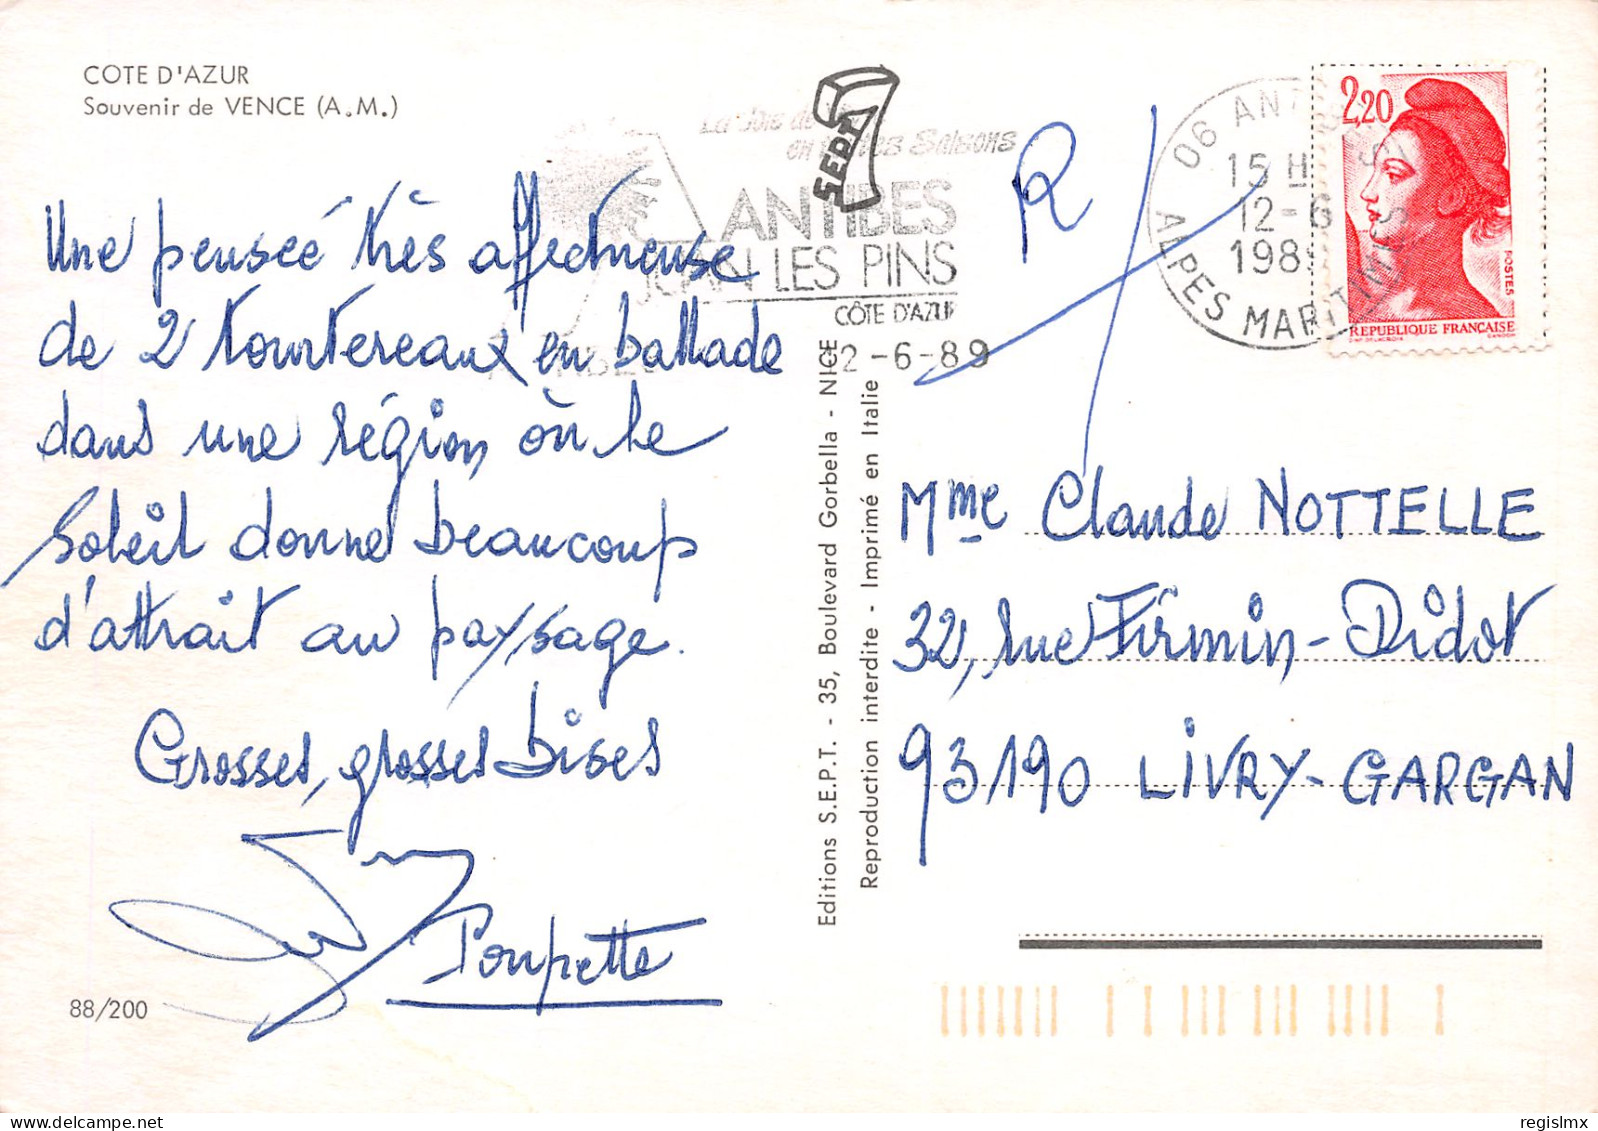 COTE D'AZUR
Souvenir de VENCE (A.M.)
Une pensée très affectueuse
de 2 tourtereaux en ballade
dans une région où le
Soleil donne beaucoup
d'attrait au paysage.
Grosses, grosses bises
Poupette
88/200
SEPT
en toutes Saisons
ANTIBES
JUAN LES PINS
CÔTE D'AZUR
2-6-89
R
06 ANTIBES
15 H
12-6
198
ALPES MARITIMES
2,20
POSTES
REPUBLIQUE FRANÇAISE
Editions S.E.P.T. - 35, Boulevard Gorbella - NICE
Reproduction interdite - Imprimé en Italie
Mme Claude NOTTELLE
32, rue Firmin-Didot
93190 LIVRY-GARGAN
regislmx